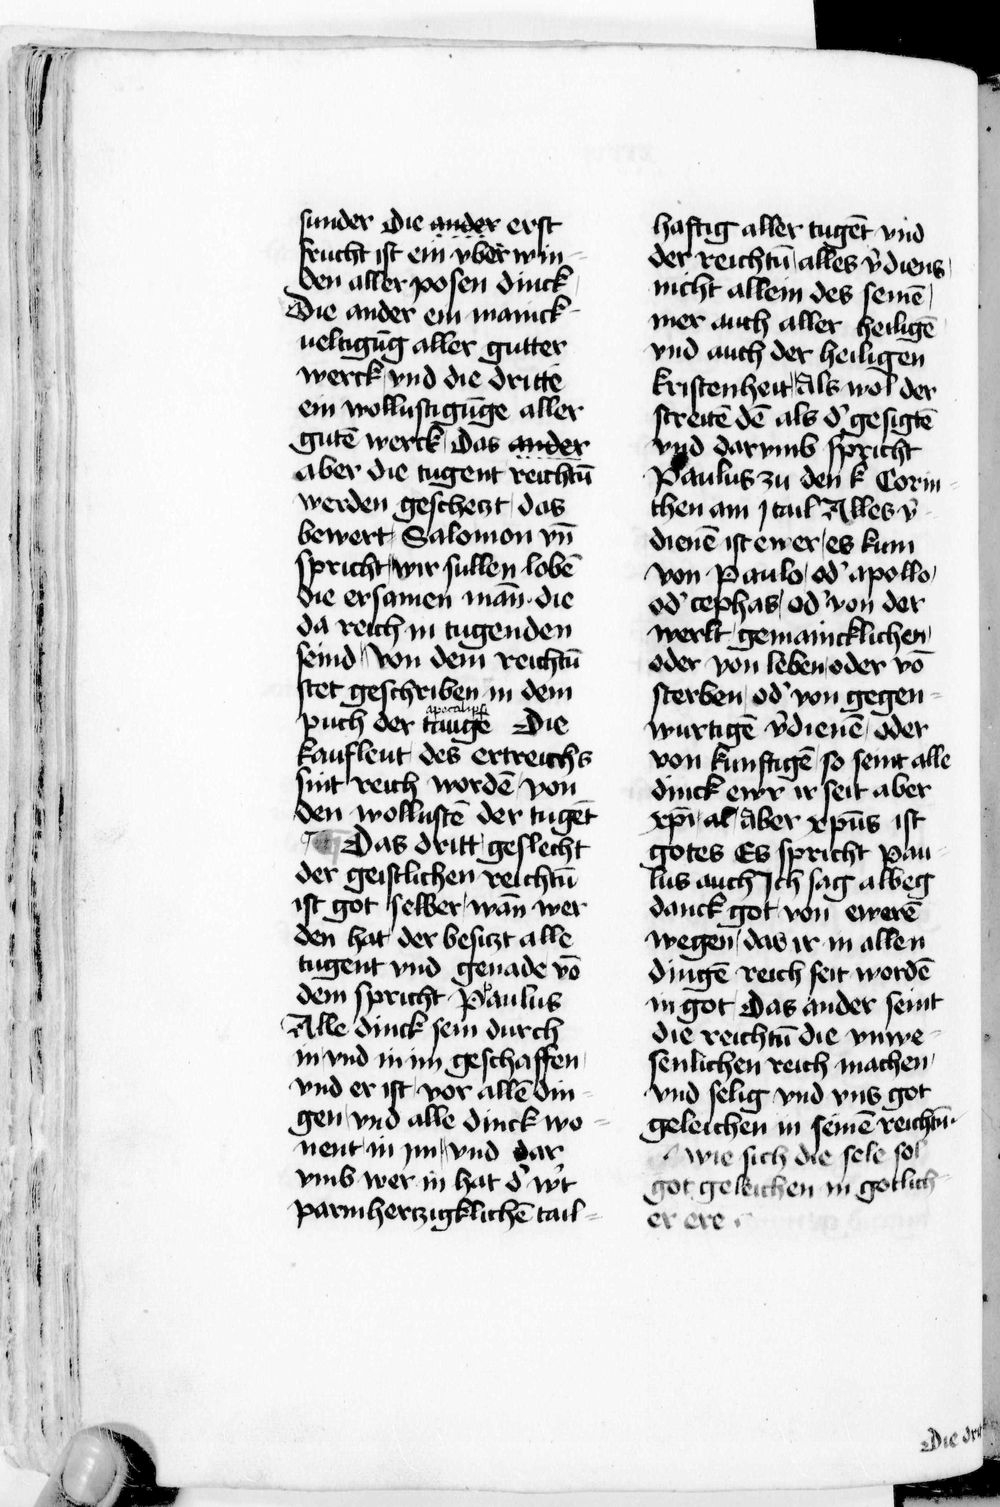 sunder Die ander erst
frucht ist ein vber win-
den aller posen dinck
Die ander ein manick-
ueltigūg aller gutter
werck vnd die dritte
ein wollustigūge aller
gutē werck Das ander
aber die tugent reichtū
werden geschetzt das
bewert Salomon vn̄
spricht wir sullen lobē
die ersamen man̄ die
da reich in tugenden
seind Von dem reichtū
stet geschriben in dem
apocalips
puch der taugē Die
kaufleut des ertreichs
sint reich wordē von
den wollustē der tugēt
Das dritt geslecht
der geistlichen reichtū
ist got selber wan̄ wer
den hat der besitzt alle
tugent vnd genade vō
dem spricht Paulus
Alle dinck sein durch
in vnd in im geschaffen
vnd er ist vor allē din-
gen vnd alle dinck wo-
nent in im vnd dar
vmb wer in hat d' w't
parmhertzigklichē tail-
haftig aller tugēt vnd
der reichtū alles v̄diens
nicht allein des seinē
mer auch aller heiligē
vnd auch der heiligen
kristenheit Als wol der
streitē dē als d' gesigtē
vnd darvmb spricht
Paulus zu den k Corin-
then am j tail Alles v̄-
dienē ist ewer es kum
von Paulo od' apollo
od' cephas od' von der
werlt gemaincklichen
oder von leben oder vō
sterben od' von gegen-
wurtigē v̄dienē oder
von kunftigē so seint alle
dinck ewr ir seit aber
xp̄i al aber xp̄us ist
gotes Es spricht Pau-
lus auch Ich sag albeg
danck got von ewerē
wegen das ir in allen
dingē reich seit wordē
in got Das ander seint
die reichtū die vnwe-
senlichen reich machen
vnd selig vnd vns got
geleichen in seinē reichtū
wie sich die sele sol
got geleichen in gotlich-
er ere
Die drit